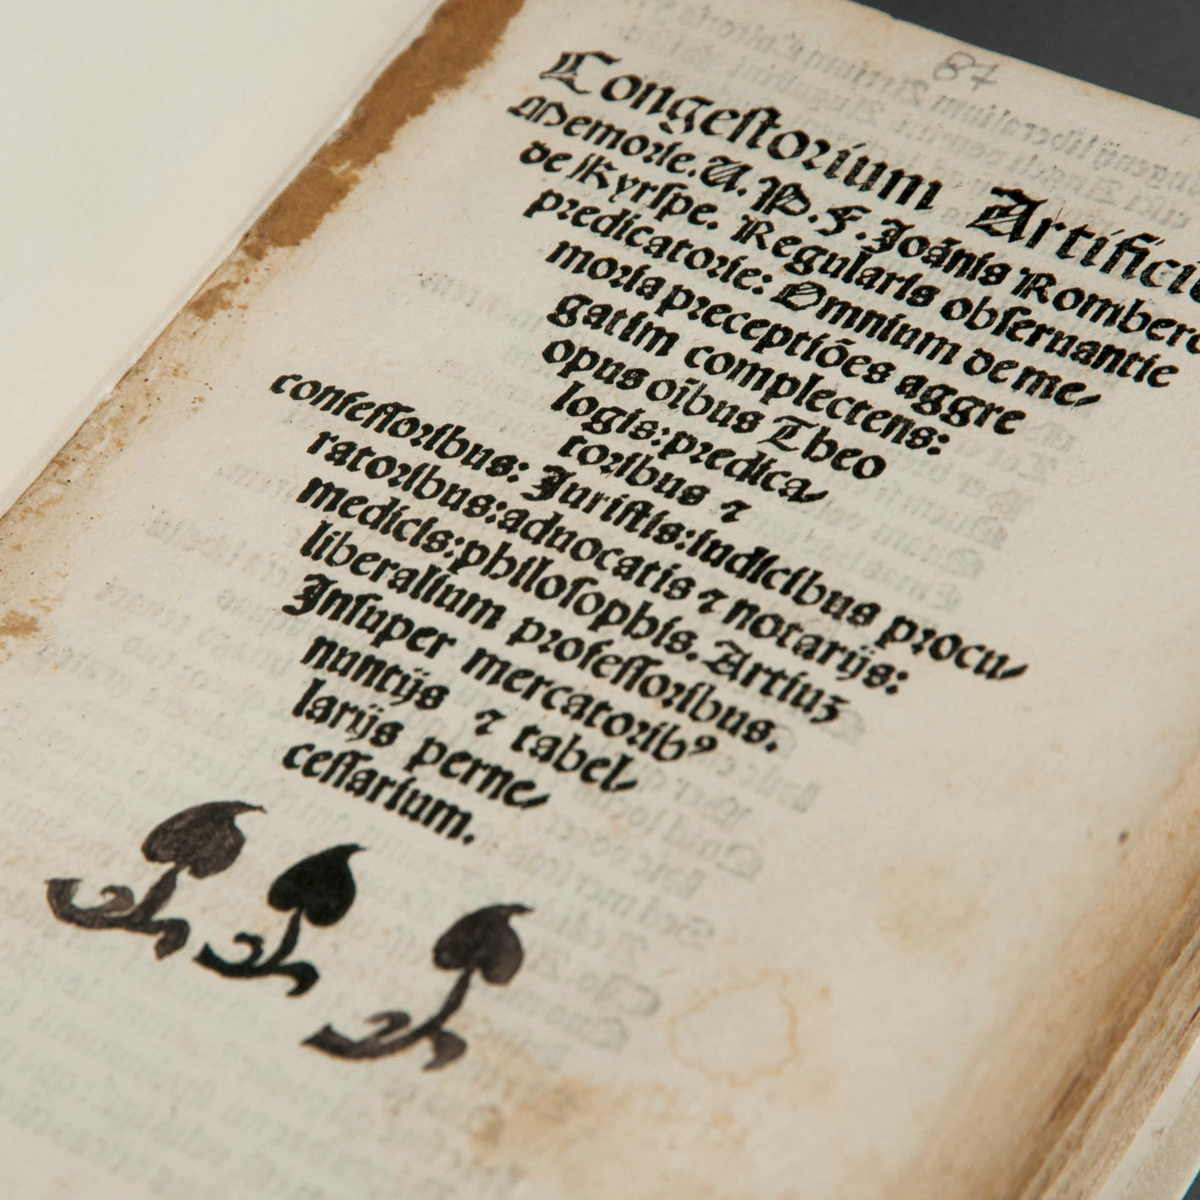 87
Congestorium Artifici
Memorie. V. P. F. Joãnis Romberc
de Kyrspe. Regularis obseruantie
predicatorie: Omnium de me-
moria preceptiões aggre
gatim complectens:
opus oĩbus Theo
logis: predica-
toribus ⁊
confessoribus: Juristis: iudicibus procu-
ratoribus: aduocatis ⁊ notarijs:
medicis: philosophis. Artiuʒ
liberalium professoribus.
Insuper mercatoribꝰ
nuntijs ⁊ tabel-
larijs perne-
cessarium.